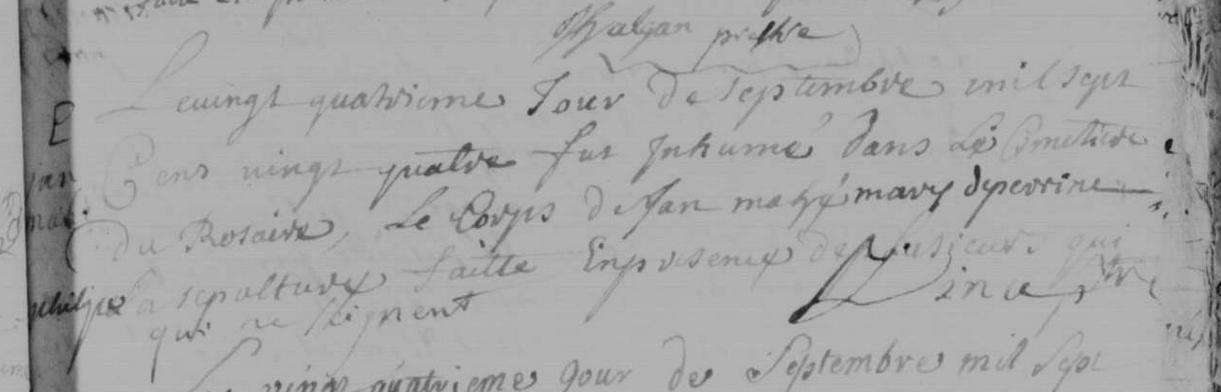 prestre
Le vingt quatrieme Jour De septembre mil sept
Cens vingt quatre fut Inhumé dans Le Cimetiere
du Rosaire, Le Corps de Jan mahé mary de perrine
philipe La sepulture faitte En presence de plusieurs qui
qui ne signent
vingt quatrieme jour de Septembre mil Sept